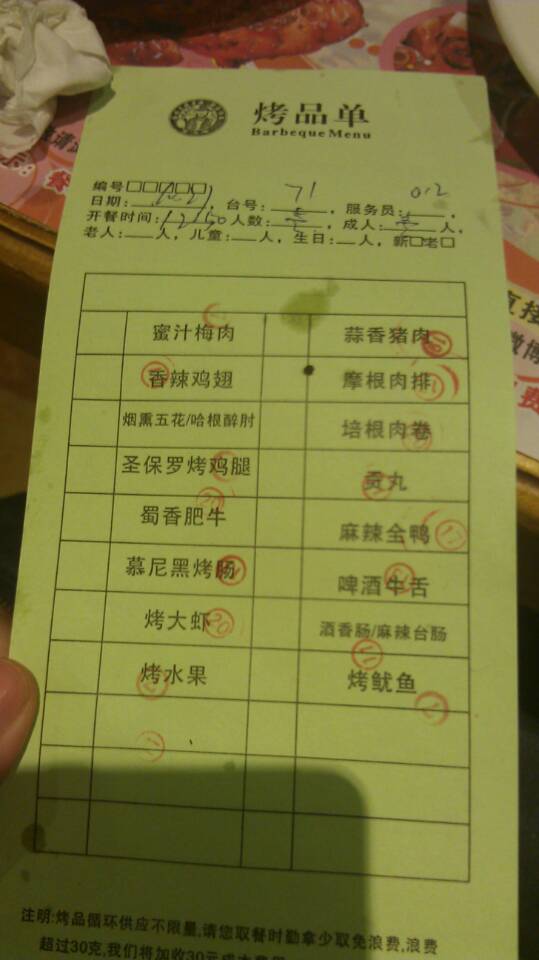 烤品单
Barbeque Menu
编号□□□□□
日期:　,台号: 71 ,服务员: 012 ,
开餐时间: 12:50 人数: ,成人: 人,
老人: 人,儿童: 人,生日: 人,新□老□
蜜汁梅肉 蒜香猪肉
香辣鸡翅 摩根肉排
烟熏五花/哈根醉肘 培根肉卷
圣保罗烤鸡腿 贡丸
蜀香肥牛 麻辣全鸭
慕尼黑烤肠 啤酒牛舌
烤大虾 酒香肠/麻辣台肠
烤水果 烤鱿鱼
注明:烤品循环供应不限量,请您取餐时勤拿少取免浪费,浪费
超过30克,我们将加收30元成本费
直接
微博
费